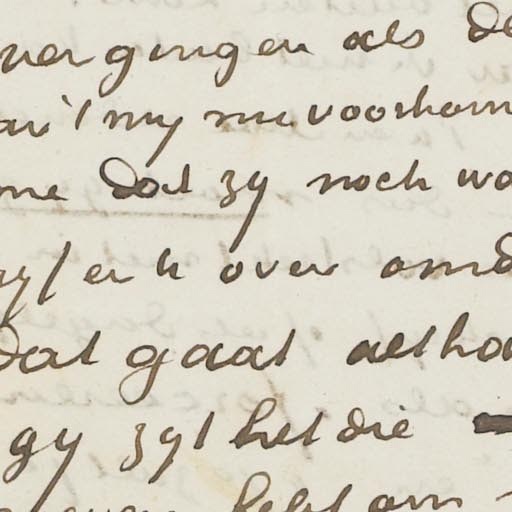 vergingen als de
my nu voorkom
me dat zy noch wa
er u over omd
dat gaat altho
gy zyt het die
hebt om